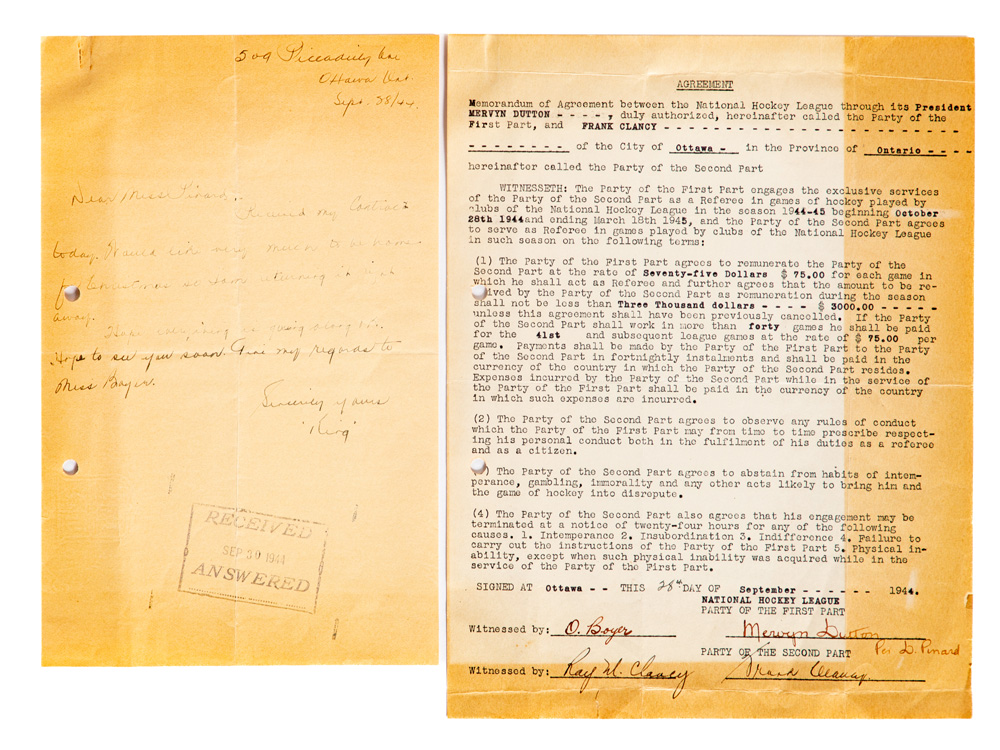 509 Piccadilly Ave
Ottawa Ont.
Sept. 28/44.
Dear Miss Pinard,
Received my Contract
today. Would like very much to be home
for Christmas. Am returning it right
away.
Hope everything is going along fine.
Hope to see you soon. Give my regards to
Miss Boyer.
Sincerely yours
"King"
RECEIVED
SEP 30 1944
ANSWERED
AGREEMENT
Memorandum of Agreement between the National Hockey League through its President
MERVYN DUTTON - - - -, duly authorized, hereinafter called the Party of the
First Part, and FRANK CLANCY - - - - - - - - - - - - - - - - - - - - - - - -
- - - - - - - - of the City of Ottawa - in the Province of Ontario - - - -
hereinafter called the Party of the Second Part
WITNESSETH: The Party of the First Part engages the exclusive services
of the Party of the Second Part as a Referee in games of hockey played by
clubs of the National Hockey League in the season 1944-45 beginning October
28th 1944and ending March 18th 1945, and the Party of the Second Part agrees
to serve as Referee in games played by clubs of the National Hockey League
in such season on the following terms:
(1) The Party of the First Part agrees to remunerate the Party of the
Second Part at the rate of Seventy-five Dollars $ 75.00 for each game in
which he shall act as Referee and further agrees that the amount to be re-
ceived by the Party of the Second Part as remuneration during the season
shall not be less than Three Thousand dollars - - - - $ 3000.00 - - - - -
unless this agreement shall have been previously cancelled. If the Party
of the Second Part shall work in more than forty games he shall be paid
for the 41st and subsequent league games at the rate of $ 75.00 per
game. Payments shall be made by the Party of the First Part to the Party
of the Second Part in fortnightly instalments and shall be paid in the
currency of the country in which the Party of the Second Part resides.
Expenses incurred by the Party of the Second Part while in the service of
the Party of the First Part shall be paid in the currency of the country
in which such expenses are incurred.
(2) The Party of the Second Part agrees to observe any rules of conduct
which the Party of the First Part may from time to time prescribe respect-
ing his personal conduct both in the fulfilment of his duties as a referee
and as a citizen.
) The Party of the Second Part agrees to abstain from habits of intem-
perance, gambling, immorality and any other acts likely to bring him and
the game of hockey into disrepute.
(4) The Party of the Second Part also agrees that his engagement may be
terminated at a notice of twenty-four hours for any of the following
causes. 1. Intemperance 2. Insubordination 3. Indifference 4. Failure to
carry out the instructions of the Party of the First Part 5. Physical in-
ability, except when such physical inability was acquired while in the
service of the Party of the First Part.
SIGNED AT Ottawa - - THIS 28th DAY OF September - - - - - - 1944.
NATIONAL HOCKEY LEAGUE
PARTY OF THE FIRST PART
Witnessed by: O. Boyer Mervyn Dutton
PARTY OF THE SECOND PART Per D. Pinard
Witnessed by: Ray M. Clancy Frank Clancy.